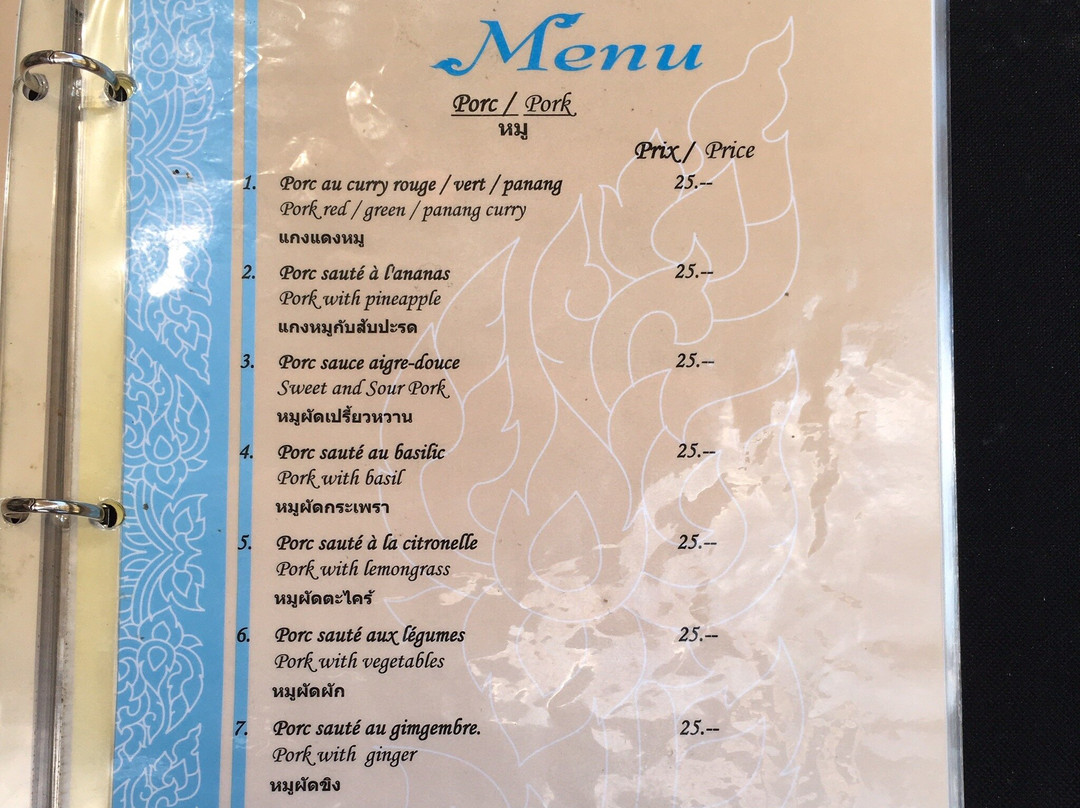 Menu
Porc / Pork
หมู
Prix / Price
1. Porc au curry rouge / vert / panang 25.--
Pork red / green / panang curry
แกงแดงหมู
2. Porc sauté à l'ananas 25.--
Pork with pineapple
แกงหมูกับสับปะรด
3. Porc sauce aigre-douce 25.--
Sweet and Sour Pork
หมูผัดเปรี้ยวหวาน
4. Porc sauté au basilic 25.--
Pork with basil
หมูผัดกระเพรา
5. Porc sauté à la citronelle 25.--
Pork with lemongrass
หมูผัดตะไคร้
6. Porc sauté aux légumes 25.--
Pork with vegetables
หมูผัดผัก
7. Porc sauté au gimgembre. 25.--
Pork with ginger
หมูผัดขิง